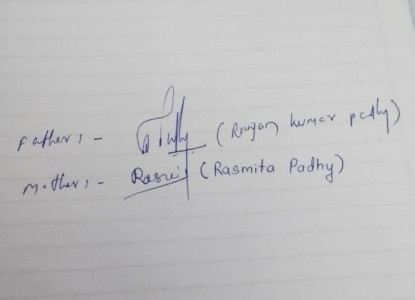 Father :- (Ranjan kumar padhy)
Mother :- Rasmi (Rasmita Padhy)